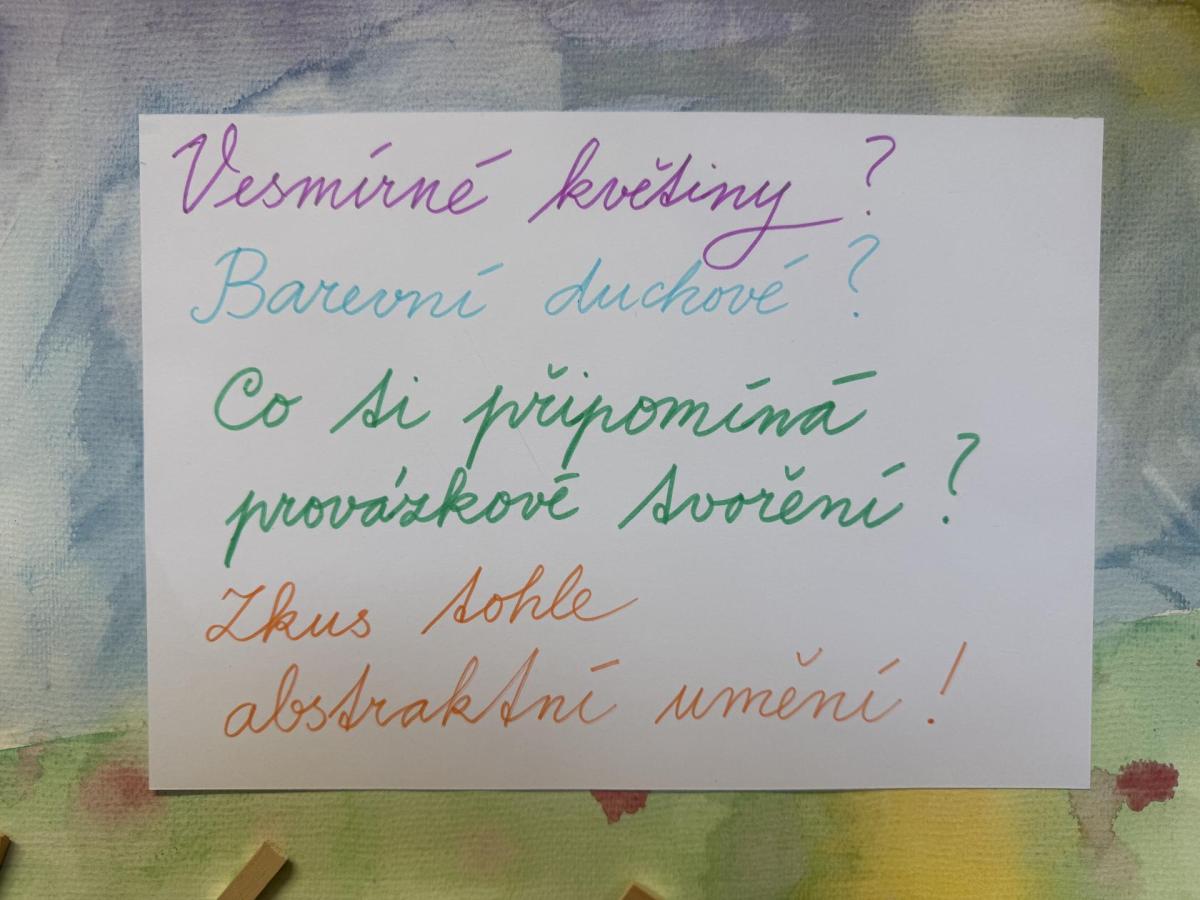 Vesmírné květiny?
Barevní duchové?
Co ti připomíná
provázkové tvoření?
Zkus tohle
abstraktní umění!